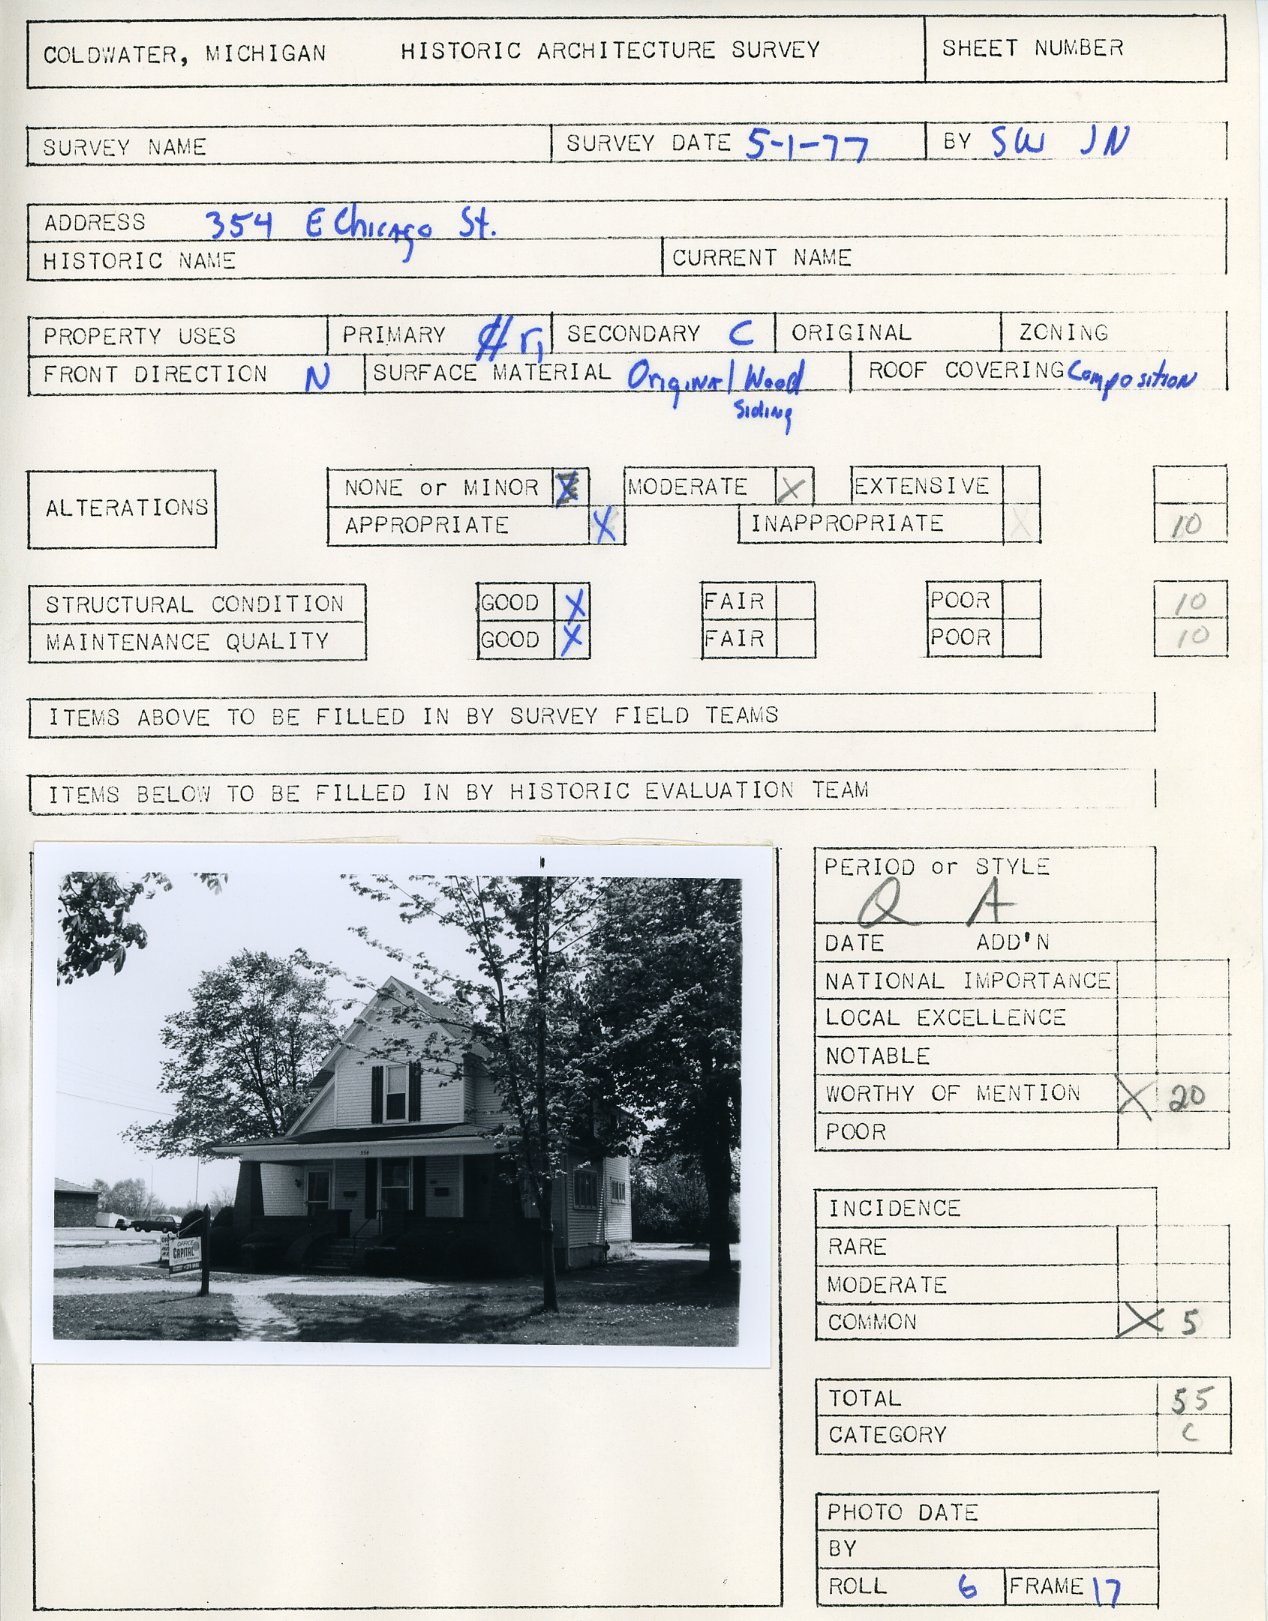 COLDWATER, MICHIGAN HISTORIC ARCHITECTURE SURVEY SHEET NUMBER
SURVEY NAME SURVEY DATE 5-1-77 BY SW JN
ADDRESS 354 E Chicago St.
HISTORIC NAME CURRENT NAME
PROPERTY USES PRIMARY SECONDARY C ORIGINAL ZONING
FRONT DIRECTION N SURFACE MATERIAL Original Wood ROOF COVERING Composition
Siding
ALTERATIONS NONE or MINOR X MODERATE X EXTENSIVE
APPROPRIATE X INAPPROPRIATE X 10
STRUCTURAL CONDITION GOOD X FAIR POOR 10
MAINTENANCE QUALITY GOOD X FAIR POOR 10
ITEMS ABOVE TO BE FILLED IN BY SURVEY FIELD TEAMS
ITEMS BELOW TO BE FILLED IN BY HISTORIC EVALUATION TEAM
354
OFFICE
CAPITAL
PERIOD or STYLE
Q A
DATE ADD'N
NATIONAL IMPORTANCE
LOCAL EXCELLENCE
NOTABLE
WORTHY OF MENTION X 20
POOR
INCIDENCE
RARE
MODERATE
COMMON X 5
TOTAL 55
CATEGORY C
PHOTO DATE
BY
ROLL 6 FRAME 17